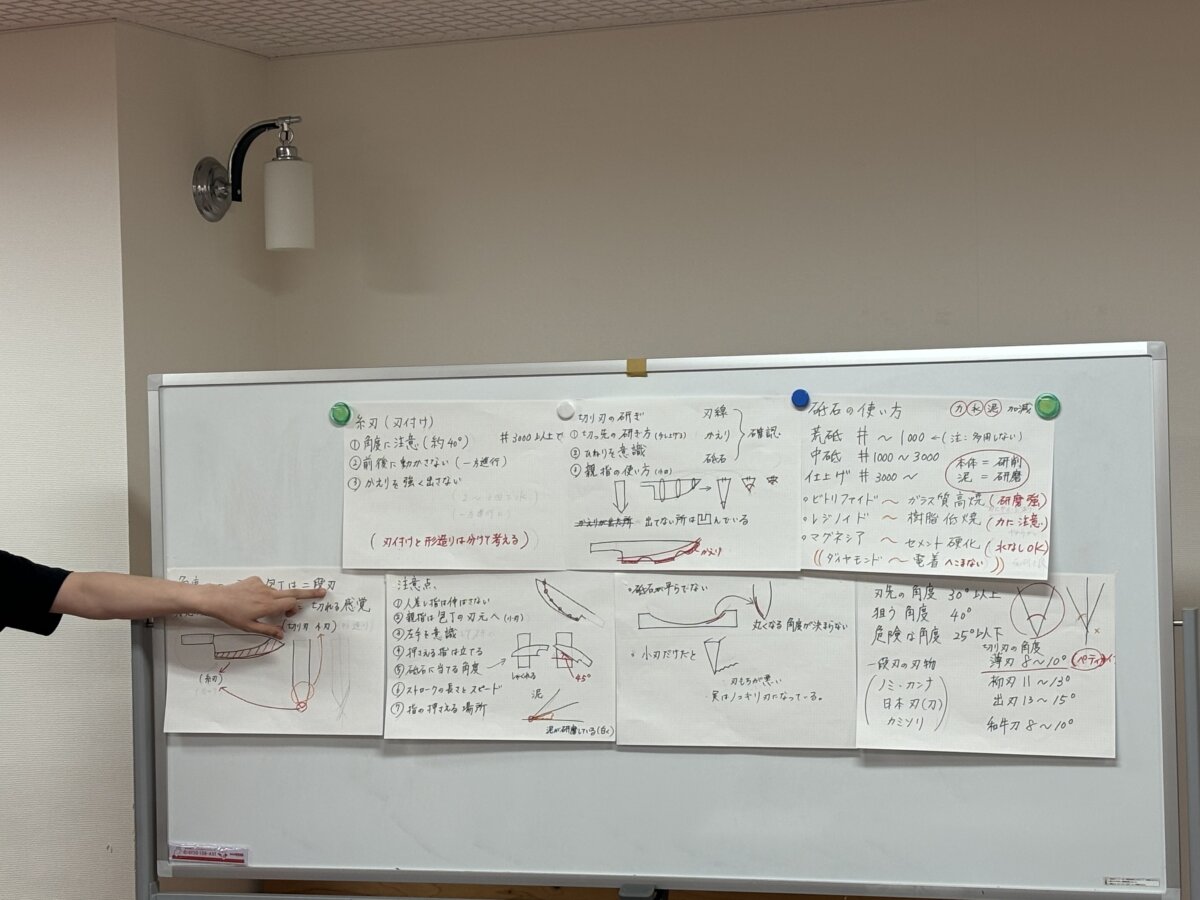 糸刃(刃付け)
#3000以上で
①角度に注意(約40°)
②前後に動かさない(一方進行)
③かえりを強く出さない
(刃付けと形造りは分けて考える)
切り刃の研ぎ
①切っ先の研ぎ方(少し上げる)
②ひねりを意識
③親指の使い方(小刃)
刃線
かえり
砥石
確認
出てない所は凹んでいる
かえり
砥石の使い方
力水泥加減
荒砥 #~1000←(注:多用しない)
中砥 #1000~3000
仕上げ #3000~
本体=研削
泥=研磨
○ビトリファイド~ガラス質高焼(研磨強)
○レジノイド~樹脂低焼(力に注意)
○マグネシア~セメント硬化(水なしOK)
((ダイヤモンド~電着 へこまない))
包丁は二段刃
切れる感覚
(切り刃 小刃)
(糸刃)
注意点、
①人差し指は伸ばさない
②親指は包丁の刃元へ(小刃)
③左手を意識
④押さえる指は立てる
⑤砥石に当てる角度
⑥ストロークの長さとスピード
⑦指の押さえる場所
しゃくれる
45°
泥
泥が研磨している(白く
○砥石が平らでない
丸くなる 角度が決まらない
○小刃だけだと
刃もちが悪い
実はノッキリ刃になっている。
刃先の角度 30°以上
狙う角度 40°
危険な角度 25°以下
一段刃の刃物
(ノミ・カンナ
日本刃(刀)
カミソリ)
切り刃の角度
薄刃 8~10°
柳刃 11~13°
出刃 13~15°
和牛刀 8~10°